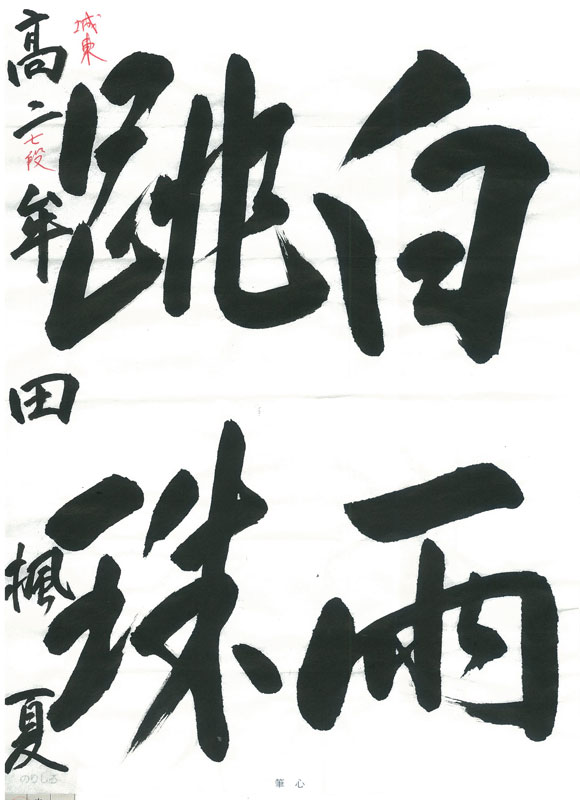 白雨
跳珠
高二 牟田 楓夏
城東
七段
のりしろ
筆心